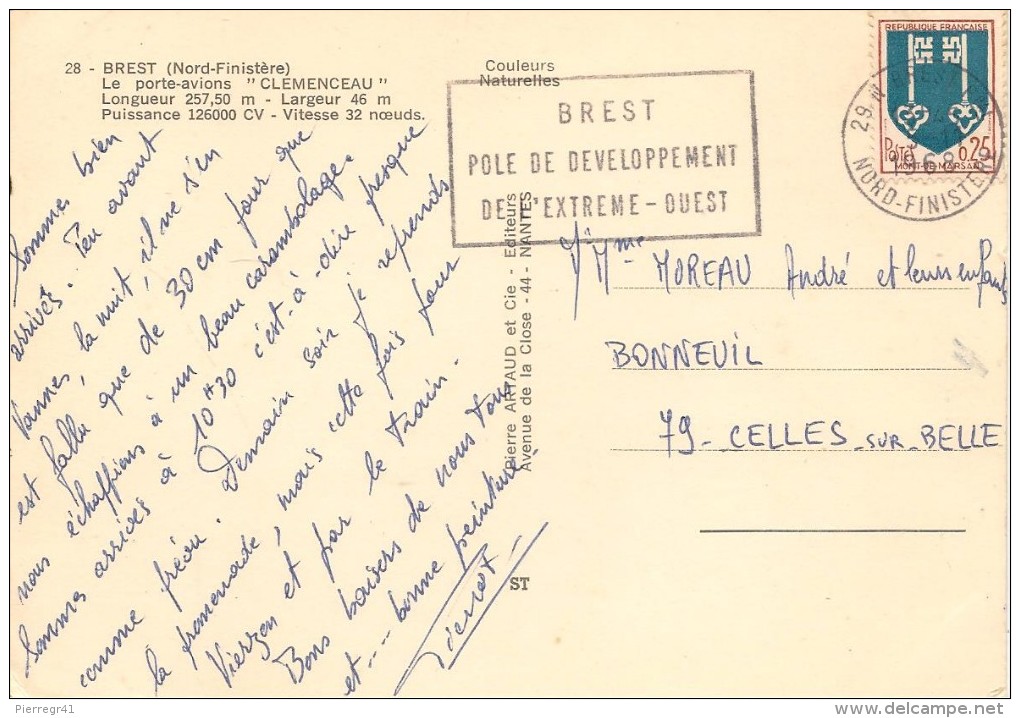 28 - BREST (Nord-Finistère)
Le porte-avions "CLEMENCEAU"
Longueur 257,50 m - Largeur 46 m
Puissance 126000 CV - Vitesse 32 nœuds.
Couleurs
Naturelles
BREST
POLE DE DEVELOPPEMENT
DE L'EXTREME-OUEST
REPUBLIQUE FRANÇAISE
Postes 0,25
MONT-DE-MARSAN
29 N BREST
NORD-FINISTERE
Sommes bien
arrivés. Peu avant
Vannes, la nuit, il ne s'en
est fallu que de 30 cm pour que
nous échappions à un beau carambolage.
Sommes arrivés à 10H30 c'est-à-dire presque
comme prévu. Demain soir je reprends
la promenade, mais cette fois pour
Vierzon et par le train.
Bons baisers de nous tous
et --- bonne peinture.
Pierrot
Pierre ARTAUD et Cie - Editeurs
Avenue de la Close - 44 - NANTES
ST
Mme MOREAU André et leurs enfants
BONNEUIL
79 - CELLES-SUR-BELLE
Pierregr41
delcampe.net